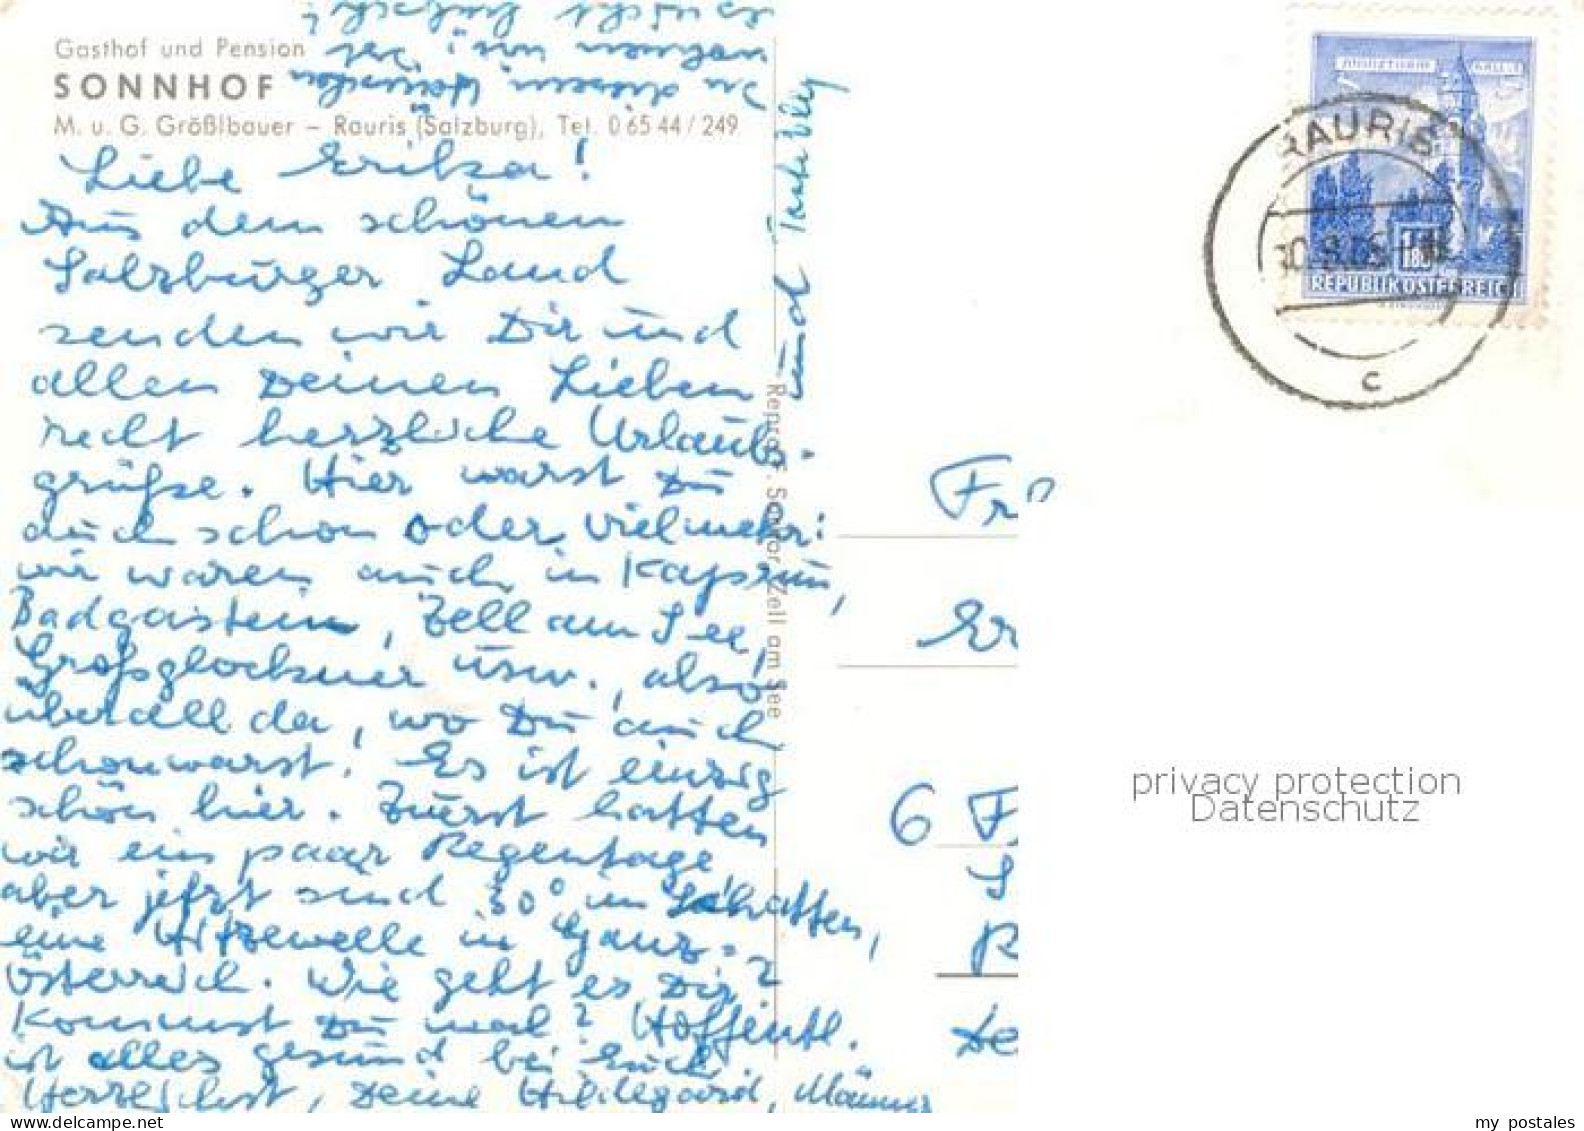 Gasthof und Pension
SONNHOF
M. u. G. Größlbauer – Rauris (Salzburg), Tel. 0 65 44 / 249
Liebe Erika!
Aus dem schönen
Salzburger Land
senden wir Dir und
allen Deinen Lieben
recht herzliche Urlaubs-
grüße. Hier warst Du
auch schon oder vielmehr:
wir waren auch in Kaprun,
Badgastein, Zell am See,
Großglockner usw., also
überall da, wo Du auch
schon warst! Es ist einzig
schön hier. Zuerst hatten
wir ein paar Regentage
aber jetzt sind 30° im Schatten,
eine Hitzewelle in Ganz-
Österreich. Wie geht es Dir?
Kommst Du mal? Hoffentl.
ist alles gesund bei Euch
Herzlichst, Deine Hildegard, Männe
und Tante Elly
In diesem Häuschen
wohnen wir;
Reprod. Zell am See
RAURIS
c
REPUBLIK ÖSTERREICH
Fr
Er
6 F
S
R
De
privacy protection
Datenschutz
my postales
www.delcampe.net